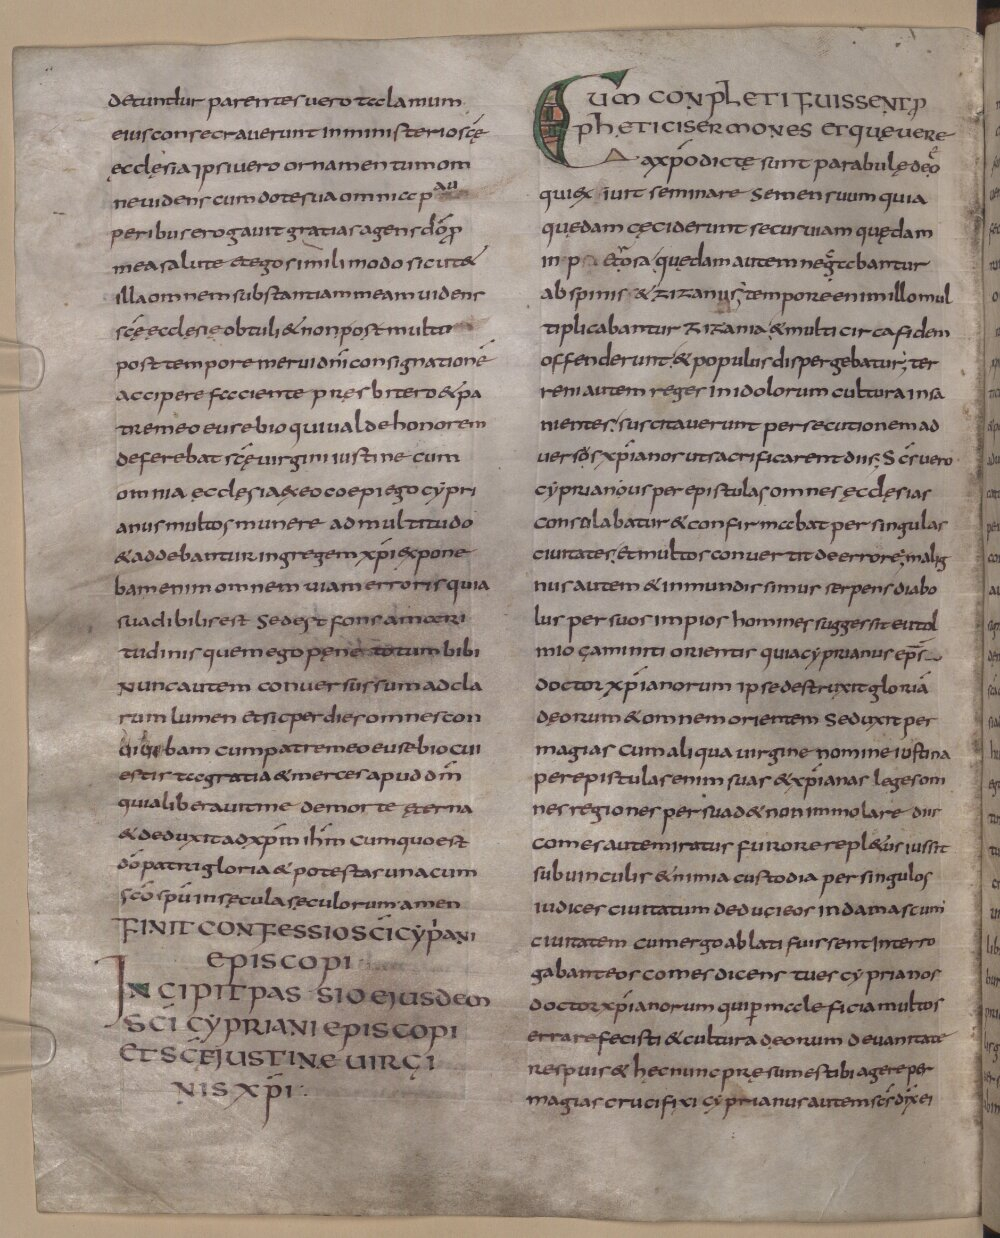 detundur parentes vero acclamum
eius consecraverunt in ministerio scę
ecclęsia ipsi vero ornamentum om
ne videns cum dote sua omnia pau
peribus erogavit gratias agens dō p
mea salute et ego simili modo sicut &
illa omnem substantiam meam videns
scę ecclęsię obtuli & non post multo
post tempore merui dn̄i consignationē
accipere faciente pręsbitero & pa
tre meo eusebio qui vialde honorem
deferebat scę virgini iustine cum
omnia ecclęsia & eo coepi ego cypri
anus multos munere ad multitudo
& addebantur in gregem xp̄i & pone
bam enim omnem viam erroris quia
suadibilis est Sed est fons amari
tudinis quem ego pęne totum bibi
Nunc autem conversus sum ad cla
rum lumen et sic per dies omnes con
bam cum patre meo eusebio cui
estis gratia & merces apud dn̄m
quia liberavit me de morte ęterna
& deduxit ad xp̄m ih̄m Cum quo est
dō patri gloria & potestas una cum
sc̄o sp̄u in sęcula sęculorum amen
FINIT CONFESSIO SC̄I CYPRIANI
EPISCOPI
INCIPIT PASSIO EJUSDEM
SC̄I CYPRIANI EPISCOPI
ET SC̄Ę JUSTINÆ VIRGI
NIS XP̄I
CUM CONPLETI FUISSENT P
PHETICI SERMONES ET QUĘ VERE
A xp̄o dictę sunt parabulę de eo
qui ex iuit seminare Semen suum quia
quędam cęciderunt secus viam quędam
in petrosa quędam autem negabantur
ab spinis & zizaniis; tempore enim illo mul
tiplicabantur zizania & multi circa fidem
offenderunt; & populus dispergebatur; ter
reni autem reges in idolorum cultura insa
nientes; suscitaverunt persecutionem ad
versos xp̄ianos ut sacrificarent diis; Sc̄s vero
cyprianus per epistulas omnes ęcclęsias
consolabatur & confirmabat per singulas
civitates; Et multos convertit de errore; malig
nus autem & inmundissimus serpens diabo
lus per suos impios homines suggessit eutol
mio çamiti orientis quia cyprianus ep̄s
doctor xp̄ianorum ipse destruxit gloriā
deorum & omnem orientem Seduxit per
magias cum aliqua virgine nomine iustina
per epistulas enim suas & xp̄ianas leges om
nes regiones persuad& non immolare diis
comes autem iratus furore repl&us iussit
sub vinculis & nimia custodia per singulos
iudices civitatum deduci eos in damascum
civitatem cum ergo ablati fuissent Interro
gabant eos comes dicens tu es cyprianos
doctor xp̄ianorum qui p maleficia multos
errare fecisti & cultura deorum devanitate
respuis & hec nunc pręsumes tibi agere per
magias crucifixi cyprianus autem sc̄s dix ei